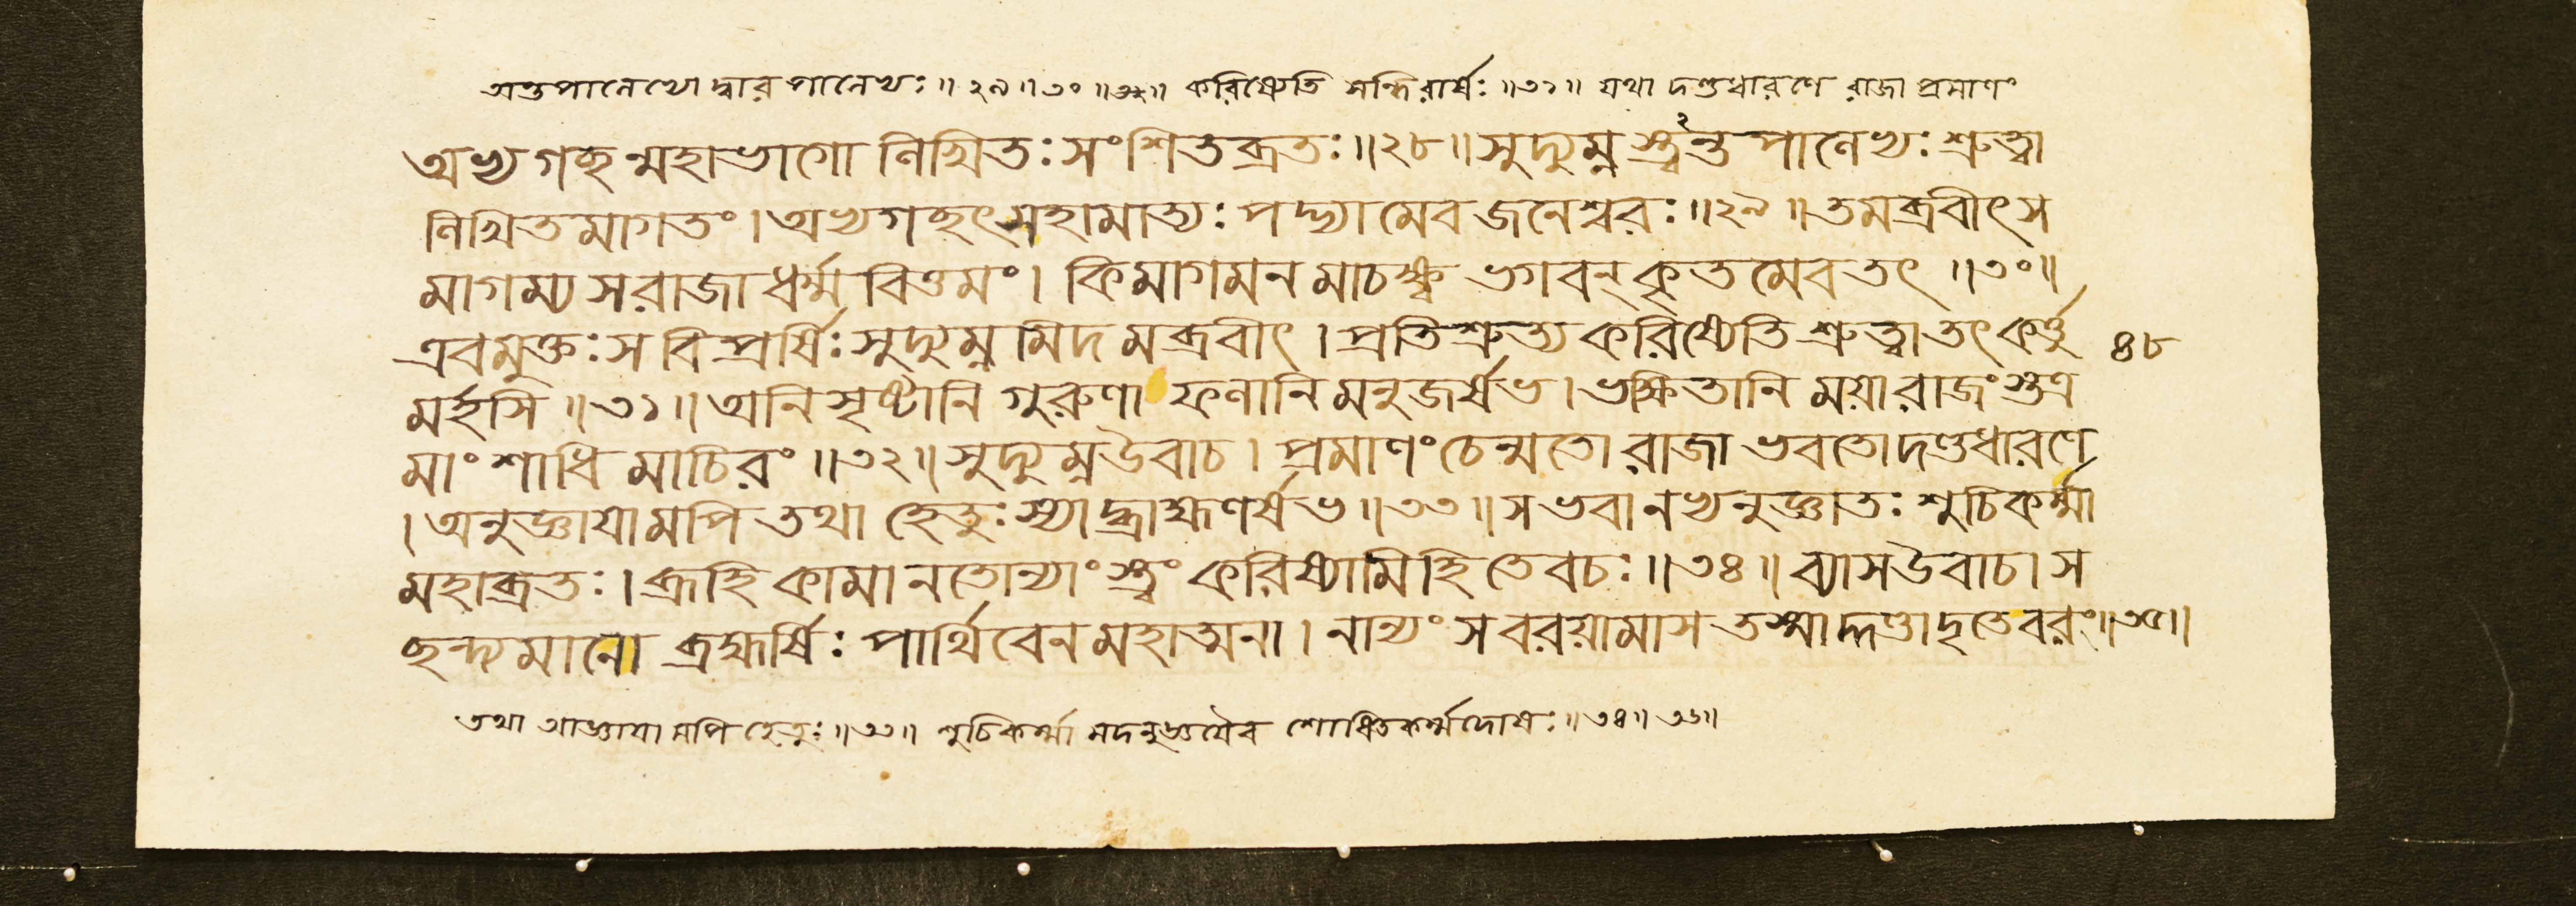 অন্তপানেথো দ্বারপানেথঃ ॥২৯॥৩০॥৩২॥ করিষ্যেতি সন্ধিরার্ষঃ ॥৩১॥ যথা দণ্ডধারণে রাজা প্রমাণং
অভ্যগচ্ছন্মহাভাগো লিখিতঃ সংশিতব্রতঃ ॥২৮॥ সুদ্যুম্নস্ত্বন্তপালেভ্যঃ শ্রুত্বা
লিখিতমাগতং । অভ্যগচ্ছৎসহামাত্যঃ পদ্ভ্যামেব জনেশ্বরঃ ॥২৯॥ তমব্রবীৎস
মাগম্য স রাজা ধর্ম্মবিত্তমং । কিমাগমনমাচক্ষ্ব ভগবন্ কৃতমেব তৎ ॥৩০॥
এবমুক্তঃ স বিপ্রর্ষিঃ সুদ্যুম্নমিদমব্রবীৎ । প্রতিশ্রুত্য করিষ্যেতি শ্রুত্বা তৎ কর্ত্তু ৪৮
মর্হসি ॥৩১॥ অনিসৃষ্টানি গুরুণা ফলানি মনুজর্ষভ । ভক্ষিতানি ময়া রাজংস্তত্র
মাং শাধি মাচিরং ॥৩২॥ সুদ্যুম্ন উবাচ । প্রমাণং চেন্মতো রাজা ভবতো দণ্ডধারণে
। অনুজ্ঞায়ামপি তথা হেতুঃ স্যাদ্ব্রাহ্মণর্ষভ ॥৩৩॥ স ভবানভ্যনুজ্ঞাতঃ শুচিকর্ম্মা
মহাব্রতঃ । ব্রূহি কামানতোন্যাংস্ত্বং করিষ্যামি হি তে বচঃ ॥৩৪॥ ব্যাস উবাচ । স
ছন্দ্যমানো ব্রহ্মর্ষিঃ পার্থিবেন মহাত্মনা । নান্যং স বরয়ামাস তস্মাদ্দণ্ডাদৃতে বরং ॥৩৫॥
তথা আজ্ঞায়ামপি হেতুঃ ॥৩৩॥ শুচিকর্ম্মা মদনুজ্ঞয়ৈব শোধিতকর্ম্মদোষঃ ॥৩৪॥৩৫॥